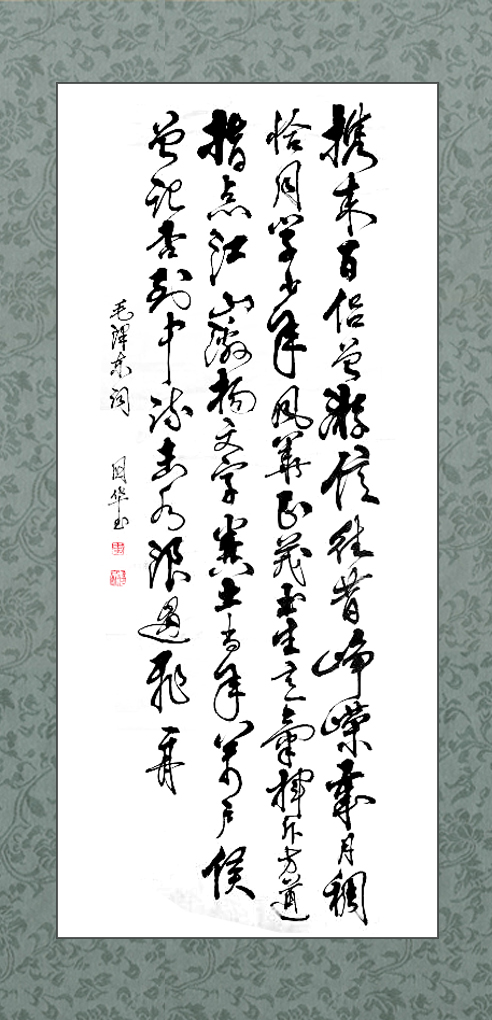 携来百侣曾游憶往昔峥嵘岁月稠
恰同学少年风華正茂书生意氣挥斥方遒
指点江山激扬文字粪土当年萬户侯
曾记否到中流击水浪遏飞舟
毛泽东词 国华书